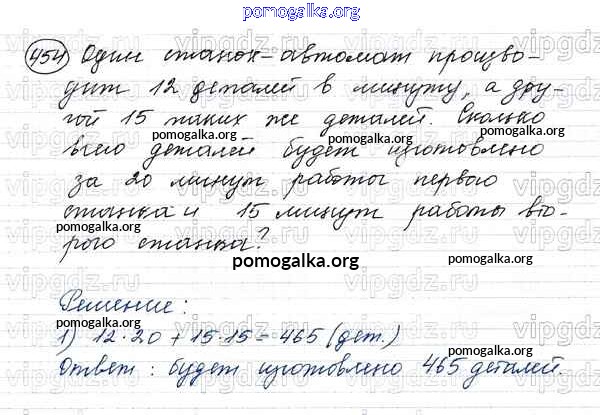 pomogalka.org
454 Один станок-автомат произво-
дит 12 деталей в минуту, а дру-
гой 15 таких же деталей. Сколько
pomogalka.org pomogalka.org
всего деталей будет изготовлено
за 20 минут работы первого
станка и 15 минут работы вто-
рого станка?
pomogalka.org
Решение:
1) 12·20 + 15·15 = 465 (дет.)
pomogalka.org pomogalka.org
Ответ: будет изготовлено 465 деталей.
vipgdz.ru